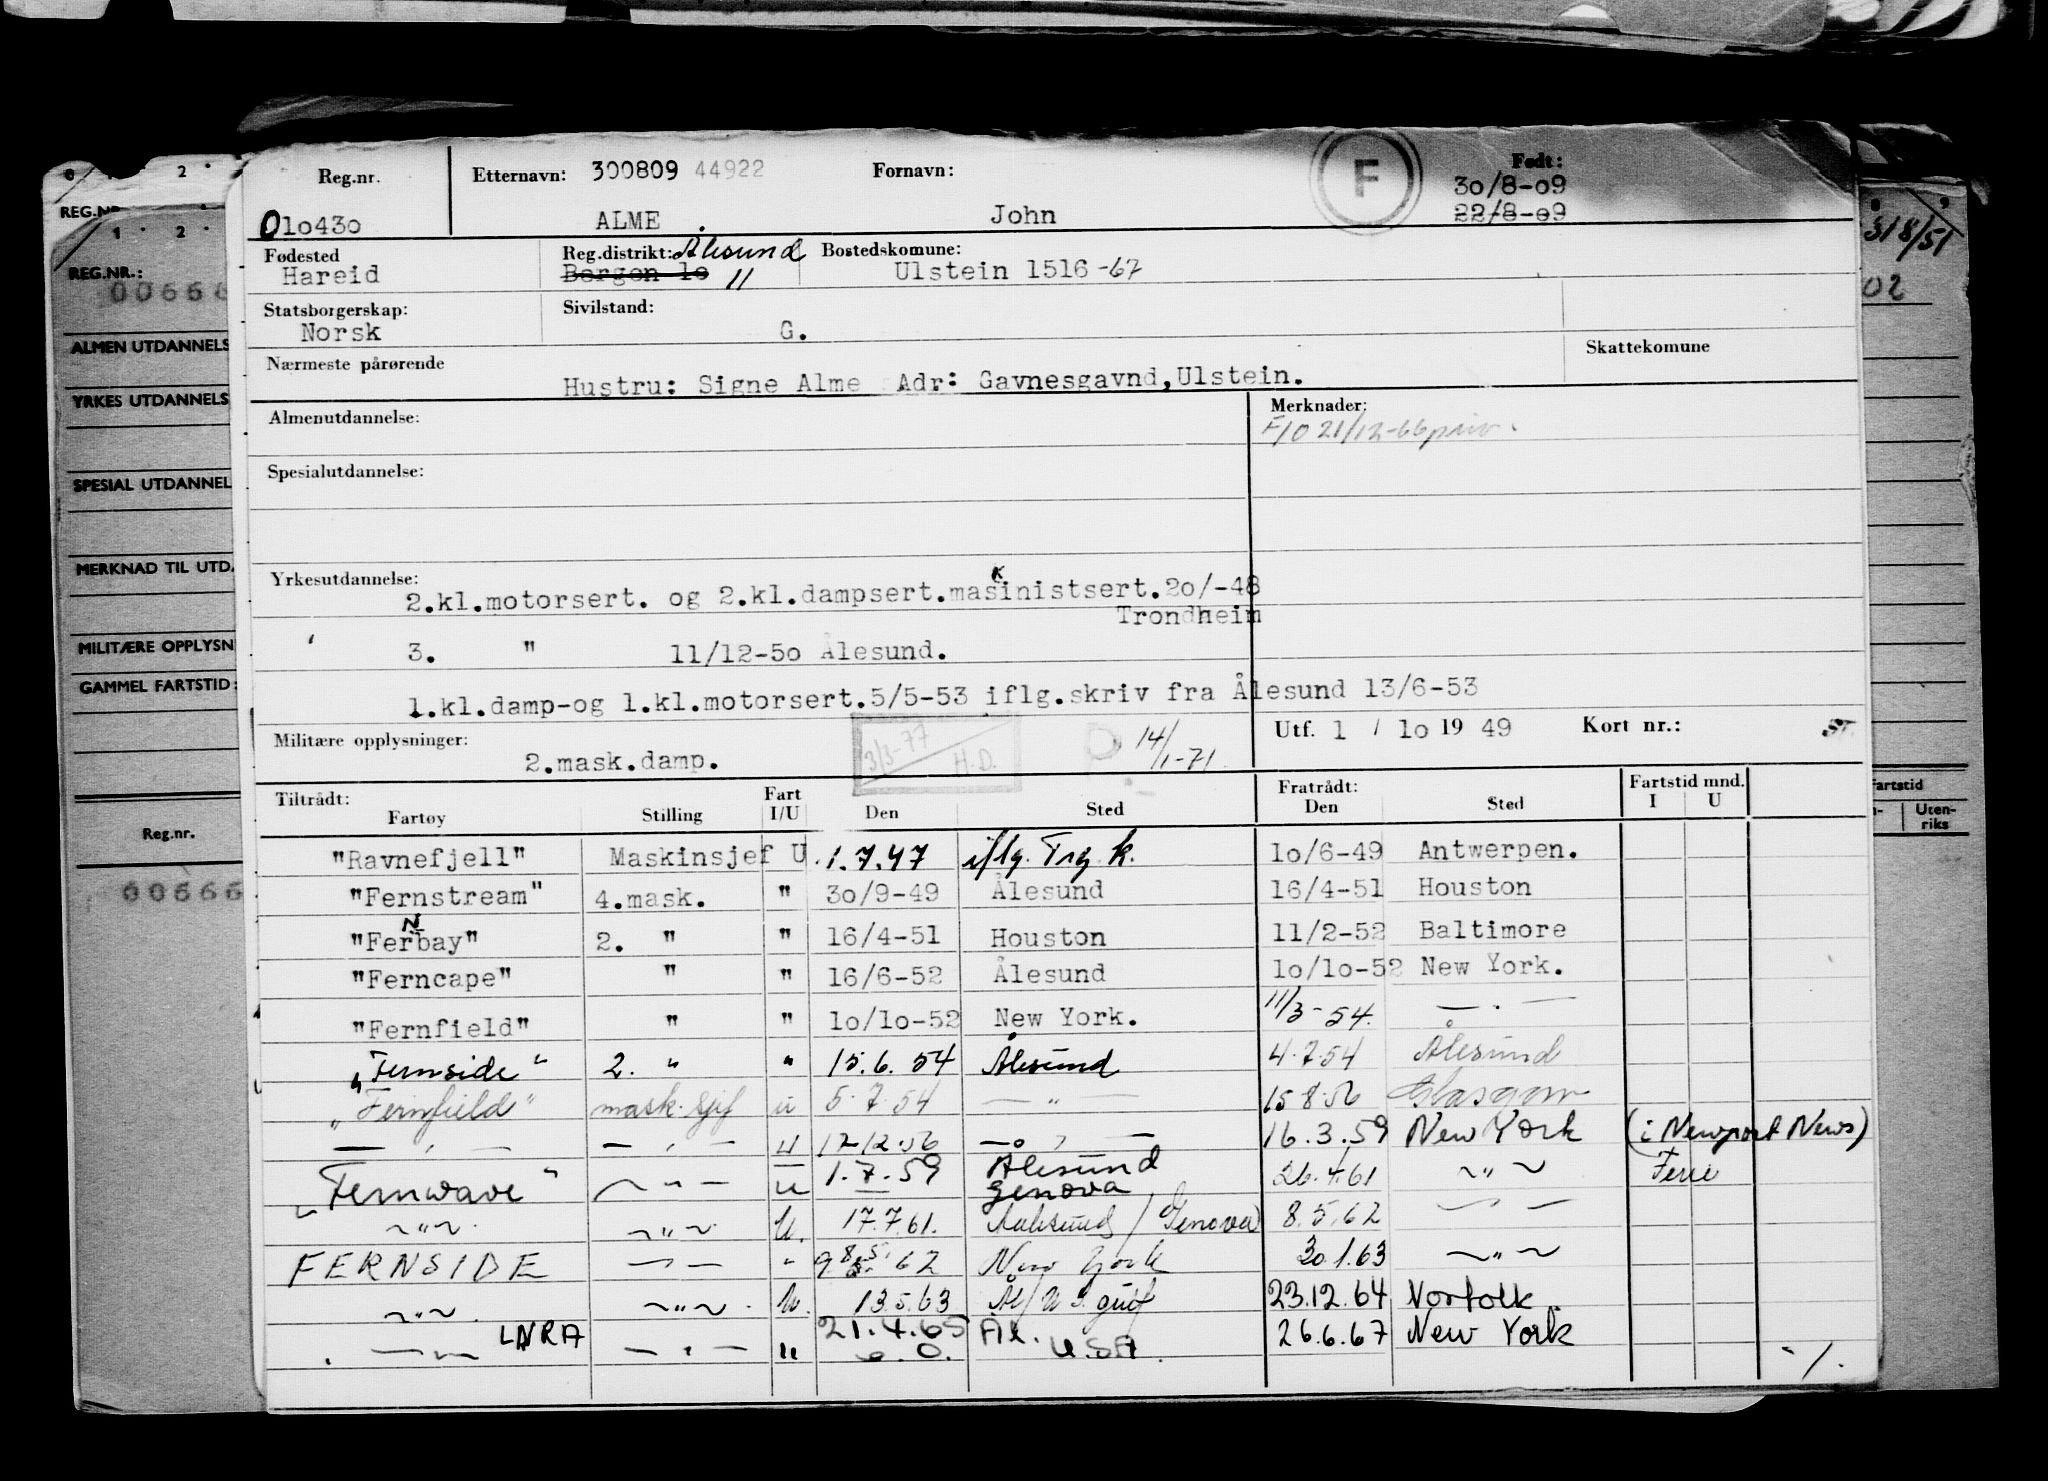 Reg.nr. Etternavn: 300809 44922 Fornavn: F Født:
30/8-09
010430 ALME John 22/8-09
Fødested Reg.distrikt: Ålesund Bostedskomune:
Hareid Bergen 10 11 Ulstein 1516-67
Statsborgerskap: Sivilstand:
Norsk G.
Nærmeste pårørende Skattekomune
Hustru: Signe Alme Adr: Gavnesgavnd,Ulstein.
Almenutdannelse: Merknader:
F/10 21/12-66 priv.
Spesialutdannelse:
Yrkesutdannelse:
2.kl.motorsert. og 2.kl.dampsert.masinistsert.20/-48
K
Trondheim
3. " 11/12-50 Ålesund.
1.kl.damp-og 1.kl.motorsert.5/5-53 iflg.skriv fra Ålesund 13/6-53
Militære opplysninger: 3/3-77 H.D. 14/1-71 Utf. 1 / 10 19 49 Kort nr.:
2.mask.damp.
Tiltrådt: Fart Fratrådt: Fartstid mnd.
Fartøy Stilling I/U Den Sted Den Sted I U
"Ravnefjell" Maskinsjef U 1.7.47 iflg. Trg. k. 10/6-49 Antwerpen.
"Fernstream" 4.mask. " 30/9-49 Ålesund 16/4-51 Houston
N
"Ferbay" 2. " " 16/4-51 Houston 11/2-52 Baltimore
"Ferncape" " " 16/6-52 Ålesund 10/10-52 New York.
"Fernfield" " " 10/10-52 New York. 11/3-54. — . —
"Fernside" 2. " " 15.6.54 Ålesund 4.7.54 Ålesund
"Fernfield" mask.sjef u 5.7.54 — " — 15.8.56 Glasgow
— " — — " — u 17.12.56 — " — 16.3.59 New York (i Newport News)
"Fernwave" — " — u 1.7.59 Ålesund Genova 26.4.61 — " — Ferie
— " — — " — U. 17.7.61. Aalesund / Genova 8.5.62 — " —
FERNSIDE — " — " 9 8.5.62 New York 30.1.63 — " —
— " — — " — U. 13.5.63 Ål/U.S. gulf 23.12.64 Norfolk.
— " — LNRA — " — u 21.4.65 Ål. USA. 26.6.67 New York
./.
REG.NR.
REG.NR.:
00666
ALMEN UTDANNELS
YRKES UTDANNELS
SPESIAL UTDANNEL
MERKNAD TIL UTD
MILITÆRE OPPLYSN
GAMMEL FARTSTID:
Reg.nr.
00666
318/51
02
artstid
Uten-
riks